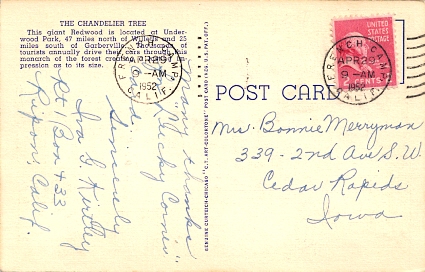 THE CHANDELIER TREE
This giant Redwood is located at Under-
wood Park, 47 miles north of Willits and 25
miles south of Garberville. Thousands of
tourists annually drive their cars through this
monarch of the forest creating a
pression as to its size.
Many thanks
"Lucky Corner"
Sincerely
Iva G. Hurtley
Rt 1 Box 433
Ripon, Calif.
GENUINE CURTEICH-CHICAGO "C.T. ART-COLORTONE" POST CARD (REG. U.S. PAT. OFF.)
POST CARD
FRENCH CAMP
APR 29
9 - AM
1952
CALIF.
UNITED STATES
POSTAGE
CENTS
FRENCH CAMP
APR 29
9 - AM
1952
CALIF.
Mrs. Bonnie Merryman
339 - 2nd Ave S.W.
Cedar Rapids
Iowa